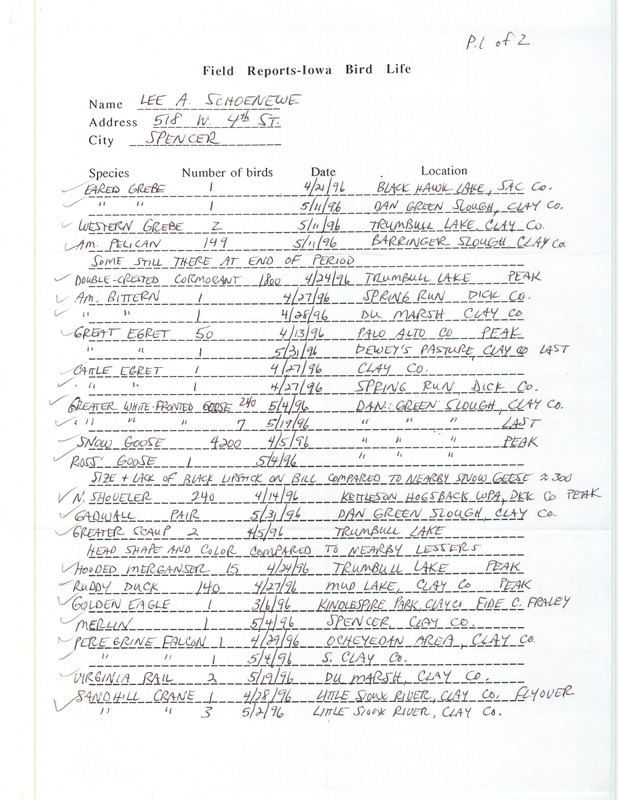 P.1 of 2
Field Reports-Iowa Bird Life
Name LEE A. SCHOENEWE
Address 518 W. 4th ST.
City SPENCER
Species Number of birds Date Location
EARED GREBE 1 4/21/96 BLACK HAWK LAKE, SAC CO.
" " 1 5/11/96 DAN GREEN SLOUGH, CLAY CO.
WESTERN GREBE 2 5/11/96 TRUMBULL LAKE, CLAY CO.
AM. PELICAN 149 5/11/96 BARRINGER SLOUGH CLAY CO.
SOME STILL THERE AT END OF PERIOD
DOUBLE-CRESTED CORMORANT 1800 4/24/96 TRUMBULL LAKE PEAK
AM. BITTERN 1 4/27/96 SPRING RUN DICK CO.
" " 1 4/28/96 DU MARSH CLAY CO
GREAT EGRET 50 4/13/96 PALO ALTO CO PEAK
" " 1 5/31/96 DEWEY'S PASTURE, CLAY CO LAST
CATTLE EGRET 1 4/27/96 CLAY CO.
" " 1 4/27/96 SPRING RUN DICK CO.
GREATER WHITE-FRONTED GOOSE 240 5/4/96 DAN GREEN SLOUGH, CLAY CO.
" " " 7 5/19/96 " " " LAST
SNOW GOOSE 4200 4/5/96 " " " PEAK
ROSS' GOOSE 1 5/4/96
SIZE + LACK OF BLACK LIPSTICK ON BILL COMPARED TO NEARBY SNOW GEESE ≈ 300
N. SHOVELER 240 4/14/96 KETTLESON HOGSBACK WPA, DICK CO PEAK
GADWALL PAIR 5/31/96 DAN GREEN SLOUGH, CLAY CO.
GREATER SCAUP 2 4/5/96 TRUMBULL LAKE
HEAD SHAPE AND COLOR COMPARED TO NEARBY LESSERS
HOODED MERGANSER 15 4/24/96 TRUMBULL LAKE PEAK
RUDDY DUCK 140 4/27/96 MUD LAKE, CLAY CO PEAK
GOLDEN EAGLE 1 3/6/96 KINDLESPIRE PARK, CLAY CO FIDE C. FRALEY
MERLIN 1 5/4/96 SPENCER CLAY CO.
PEREGRINE FALCON 1 4/29/96 OCHEYEDAN AREA, CLAY CO.
" " 1 5/4/96 S. CLAY CO.
VIRGINIA RAIL 2 5/19/96 DU MARSH, CLAY CO.
SANDHILL CRANE 1 4/28/96 LITTLE SIOUX RIVER, CLAY CO. FLYOVER
" " 3 5/2/96 LITTLE SIOUX RIVER, CLAY CO.